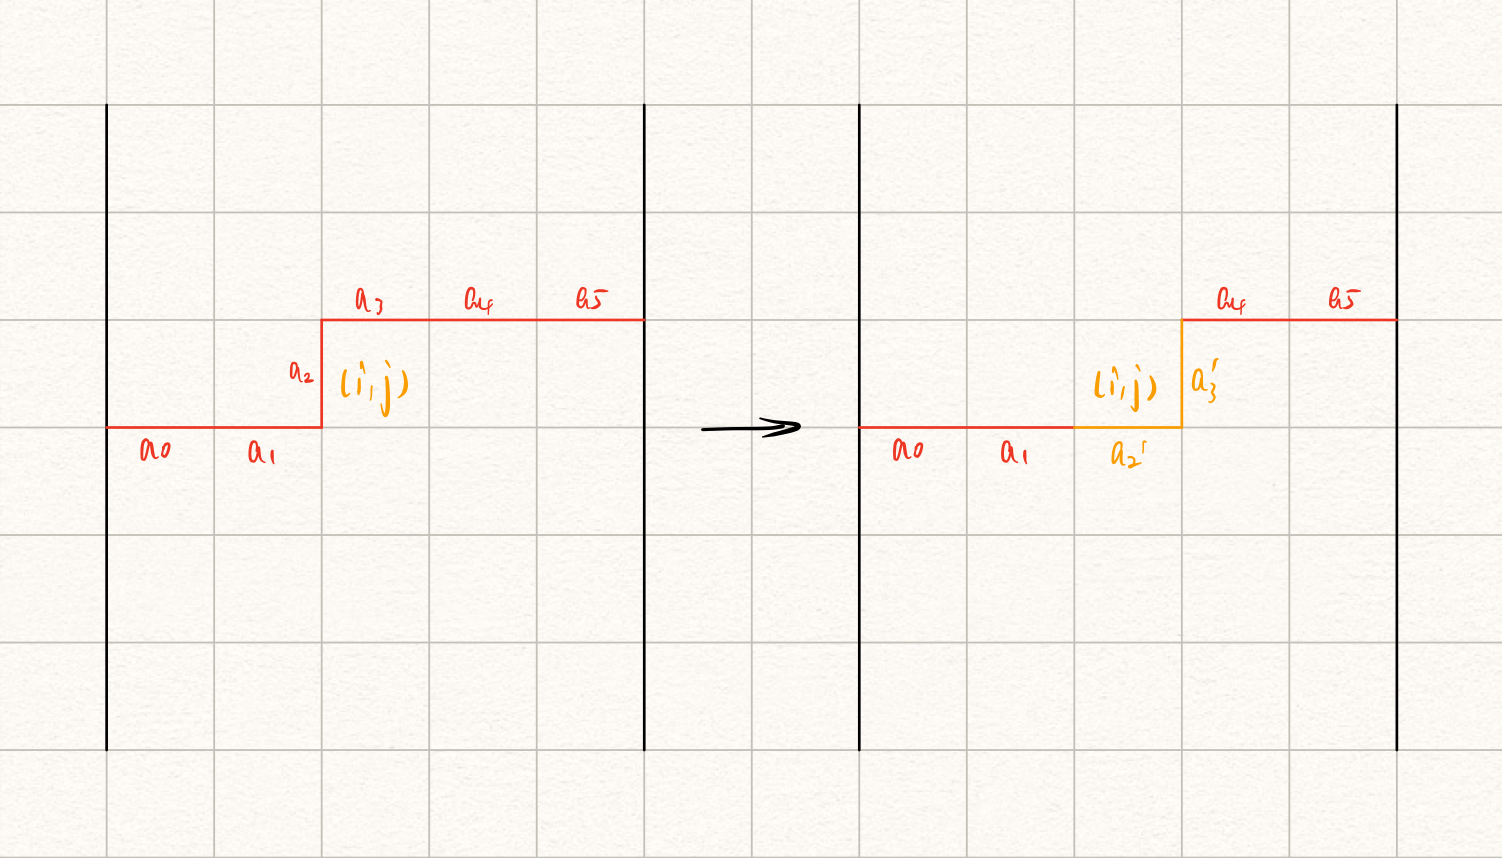 a3 a4 a5
a2 (i,j)
a0 a1
a4 a5
(i,j) a3'
a0 a1 a2'